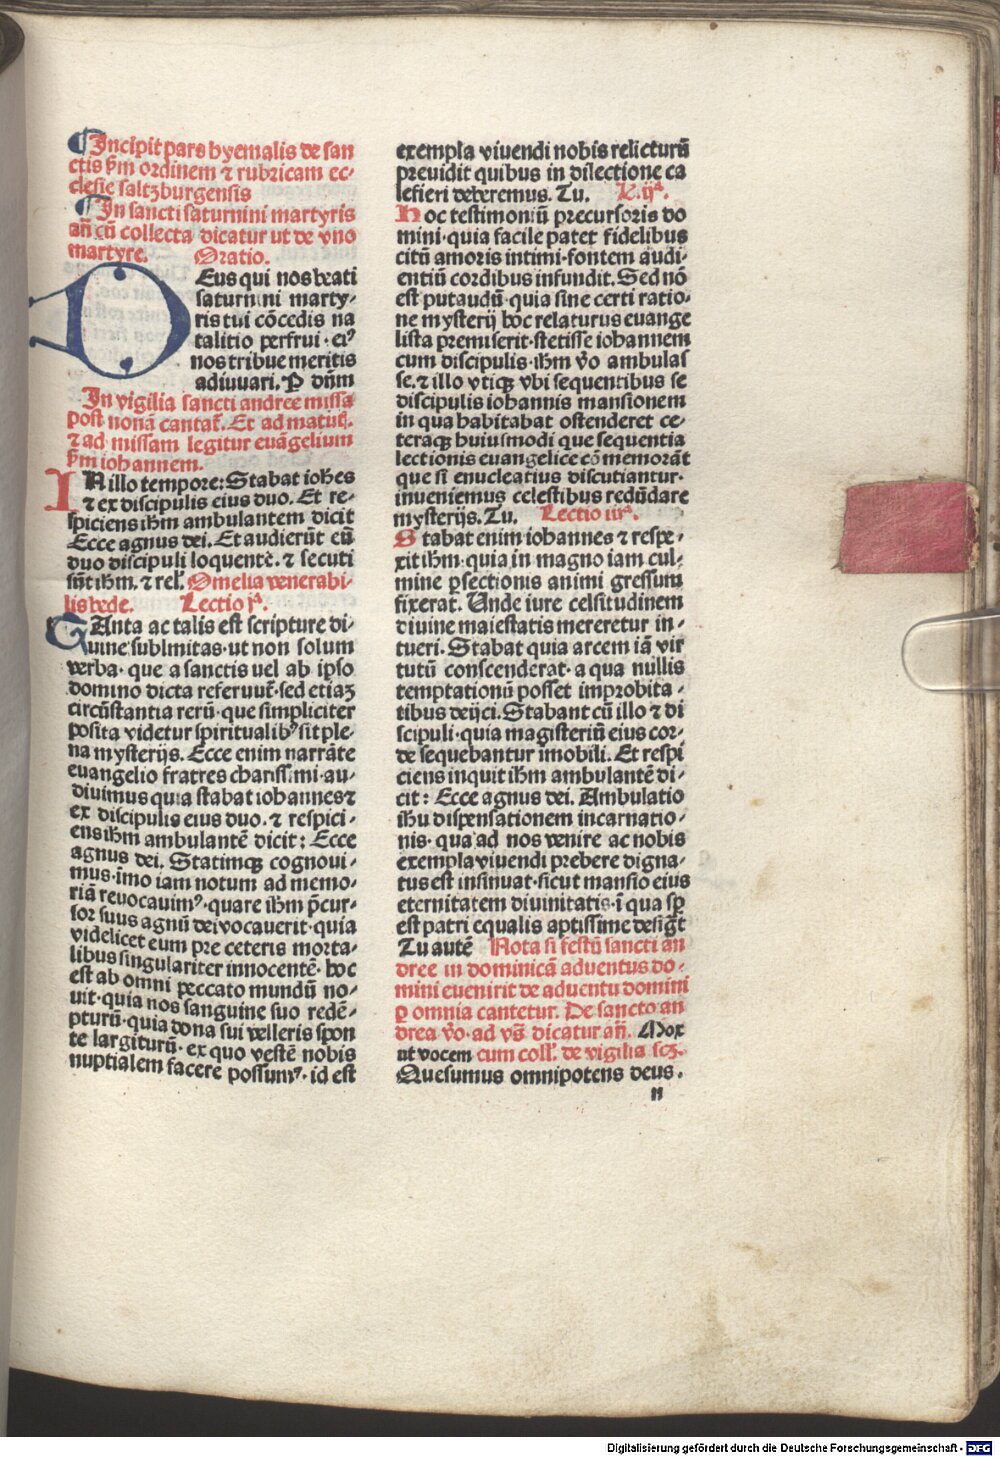 ¶ Incipit pars hyemalis de san
ctis ẜm ordinem ⁊ rubricam ec⸗
clesie saltzburgensis
¶ In sancti saturnini martyris
añ cū collecta dicatur ut de vno
martyre. Oratio.
DEus qui nos beati
saturnini marty⸗
ris tui cōcedis na
talitio perfrui · eiꝰ
nos tribue meritis
adiuuari. P dn̄m
In vigilia sancti andree missa
post nonā cantat᷑. Et ad matuĩ.
⁊ ad missam legitur euāgelium
ẜm iohannem.
IN illo tempore: Stabat ioh̄es
⁊ ex discipulis eius duo. Et re⸗
spiciens ih̄m ambulantem dicit
Ecce agnus dei. Et audierūt eū
duo discipuli loquentē. ⁊ secuti
sūt ih̄m. ⁊ rel̄. Omelia venerabi⸗
lis bede. Lectio jª.
TAnta ac talis est scripture di⸗
uine sublmitas · ut non solum
verba · que a sanctis uel ab ipso
domino dicta referuut᷑ · sed etiaꝫ
circūstantia rerū · que simpliciter
posita videtur spiritualibꝰ sit ple⸗
na mysterijs. Ecce enim narrāte
euangelio fratres charissimi · au⸗
divimus quia stabat iohannes ⁊
ex discipulis eius duo. ⁊ respici⸗
ens ih̄m ambulantē dicit : Ecce
agnus dei. Statimqꝫ cognoui⸗
mus · imo iam notum ad memo⸗
riā reuocauimꝰ · quare ih̄m p̄cur⸗
sor suus agnū dei vocauerit · quia
videlicet eum pre ceteris morta⸗
libus singulariter innocentē · hoc
est ab omni peccato mundū no⸗
uit · quia nos sanguine suo redē⸗
pturū · quia dona sui velleris spon
te largiturū · ex quo vestē nobis
nuptialem facere possumꝰ · id est
exempla vivendi nobis relicturū
preuidit quibus in dilectione ca
lefieri deberemus. Tu. L. ijª.
Hoc testimoniū precursoris do
mini · quia facile patet fidelibus
citū amoris intimi · fontem audi⸗
entiū cordibus infundit. Sed nō
est putaudū · quia sine certi ratio⸗
ne mysterij hoc relaturus euange
lista premiserit · stetisse iohannem
cum discipulis · ih̄m v̄o ambulas
se. ⁊ illo vtiqꝫ vbi sequentibus se
discipulis iohannis mansionem
in qua habitabat ostenderet ce⸗
teraqꝫ huiusmodi que sequentia
lectionis euangelice cō memorāt
que si enucleatius discutiantur ·
inueniemus celestibus redūdare
mysterijs. Tu. Lectio iijª.
Stabat enim iohannes ⁊ respe⸗
xit ih̄m · quia in magno iam cul⸗
mine ꝑfectionis animi gressum
fixerat. Unde iure celsitudinem
diuine maiestatis mereretur in⸗
tueri. Stabat quia arcem iā vir
tutū conscenderat · a qua nullis
temptationū posset improbita⸗
tibus deijci. Stabant cū illo ⁊ di
scipuli · quia magisteriū eius cor⸗
de sequebantur īmobili. Et respi
ciens inquit ih̄m ambulantē di⸗
cit : Ecce agnus dei. Ambulatio
ih̄u dispensationem incarnatio⸗
nis · qua ad nos venire ac nobis
exempla viuendi prebere digna⸗
tus est insinuat · sicut mansio eius
eternitatem divinitatis · ī qua sp̄
est patri equalis aptissime desig᷑t
Tu autē Nota si festū sancti an
dree in dominicā aduentus do⸗
mini euenirit de aduentu domini
ꝑ omnia cantetur. De sancto an
drea v̄o · ad vs̄ dicatur añ. Mox
ut vocem cum coll̄. de vigilia scꝫ.
Quesumus omnipotens deus.
n
Digitalisierung gefördert durch die Deutsche Forschungsgemeinschaft - DFG